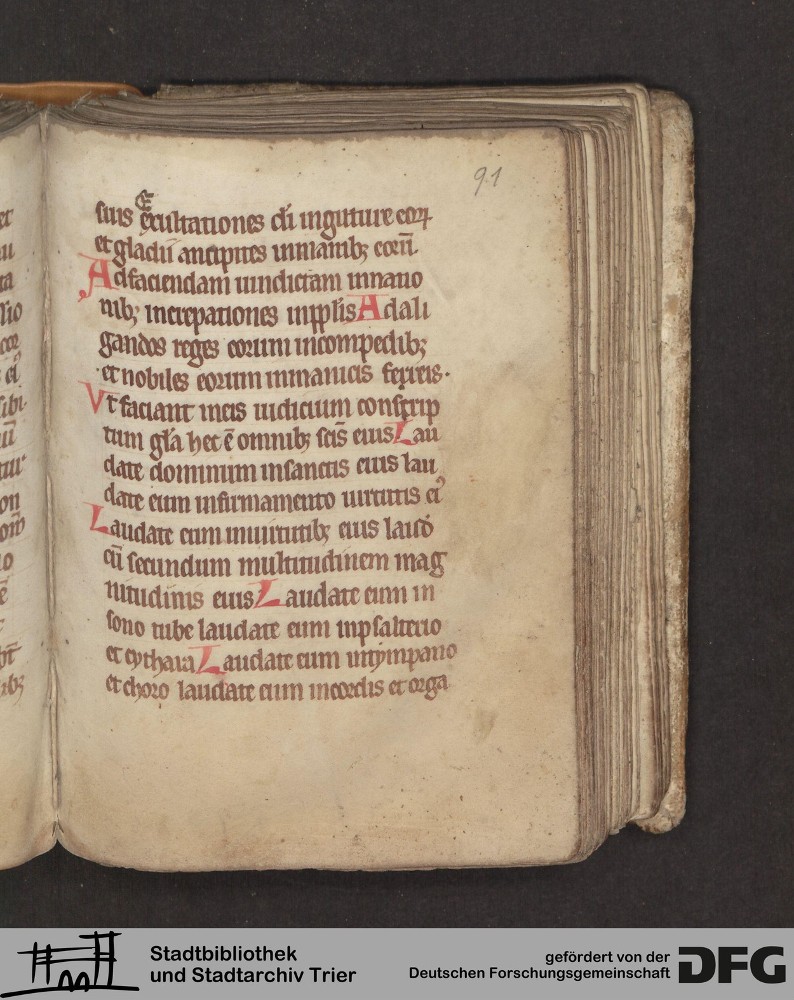 91
suis Exultationes di inguture eoꝝ
et gladii ancipites inmanibꝫ eorū
Ad faciendam uindictam innatio
nibꝫ increpationes inpplis Ad ali
gandos reges eorum incompedibꝫ
et nobiles eorum inmanicis ferreis.
Vt faciant ineis iudicium conscrip
tum gl̄a hec ē omnibꝫ scis̄ eius Lau
date dominum insanctis eius lau
date eum infirmamento uirtutis ei᾽
Laudate eum inuirtutibꝫ eius
cū secundum multitudinem mag
nitudinis eius Laudate eum in
sono tube laudate eum inpsalterio
et cythara Laudate eum intympano
et choro laudate eum incordis et orga
Stadtbibliothek
und Stadtarchiv Trier
gefördert von der
Deutschen Forschungsgemeinschaft
DFG